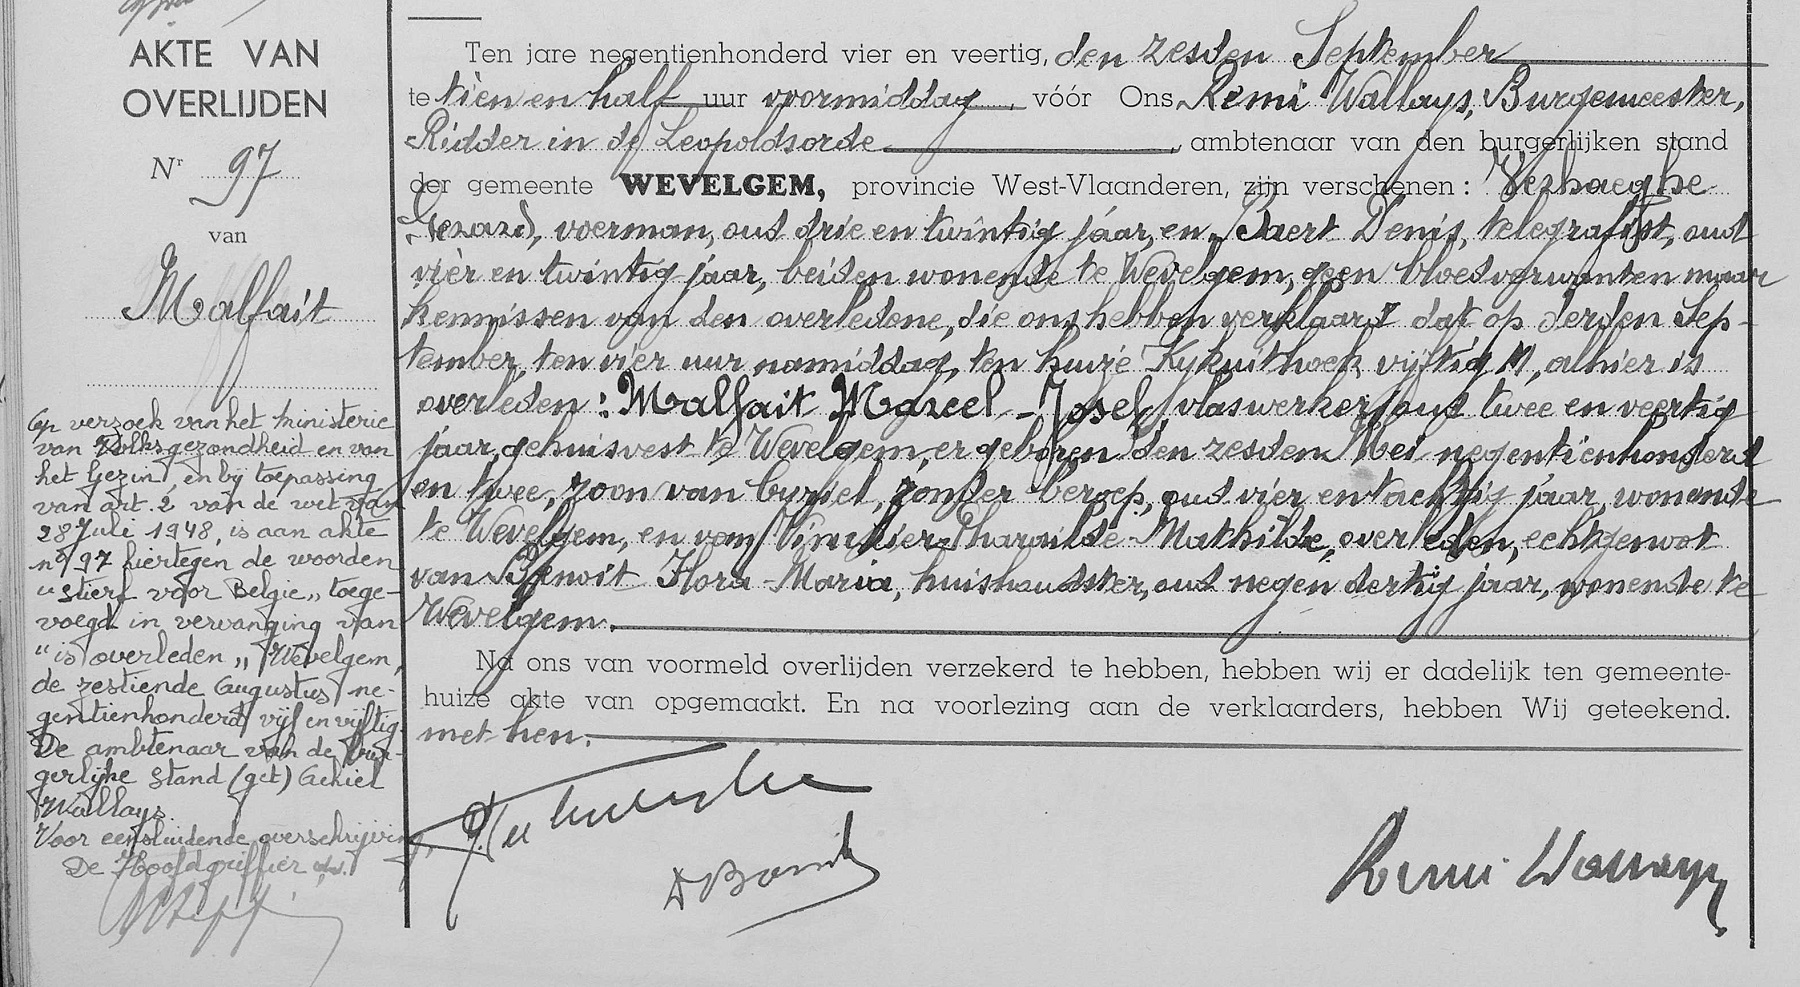 AKTE VAN
OVERLIJDEN
Nr 97
van
Malfait
Op verzoek van het Ministerie
van Volksgezondheid en van
het Gezin, en bij toepassing
van art. 2 van de wet van
28 Juli 1948, is aan akte
n° 97 hiertegen de woorden
"stierf voor België" toege-
voegd in vervanging van
"is overleden" Wevelgem,
de zestiende Augustus ne-
gentienhonderd vijf en vijftig.
De ambtenaar van de bur-
gerlijke stand (get) Achiel
Wallays.
Voor eensluidende overschrijving,
De Hoofdgriffier
Ten jare negentienhonderd vier en veertig, den zesden September
te tien en half uur voormiddag, vóór Ons Remi Wallays, Burgemeester,
Ridder in de Leopoldsorde, ambtenaar van den burgerlijken stand
der gemeente WEVELGEM, provincie West-Vlaanderen, zijn verschenen : Verhaeghe
Gerard, voerman, oud drie en twintig jaar, en Baert Denis, telegrafist, oud
vier en twintig jaar, beiden wonende te Wevelgem, geen bloedverwanten maar
kennissen van den overledene, die ons hebben verklaard dat op derden Sep-
tember, ten vier uur namiddag, ten huize Kijkuithoek vijftig, alhier is
overleden : Malfait Marcel - Josef, vlaswerker, oud twee en veertig
jaar, gehuisvest te Wevelgem, er geboren den zesden Mei negentienhonderd
en twee, zoon van Cyriel, zonder beroep, oud vier en tachtig jaar, wonende
te Wevelgem, en van Vinckier Tharailde - Mathilde, overleden, echtgenoot
van Benoit Flora - Maria, huishoudster, oud negen dertig jaar, wonende te
Wevelgem.
Na ons van voormeld overlijden verzekerd te hebben, hebben wij er dadelijk ten gemeente-
huize akte van opgemaakt. En na voorlezing aan de verklaarders, hebben Wij geteekend.
met hen.
Remi Wallays